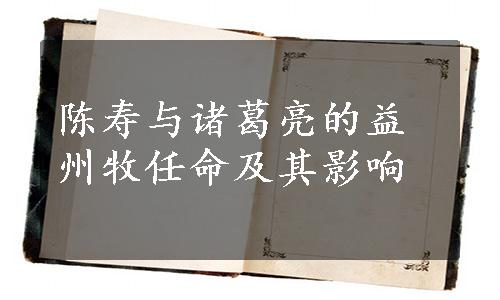 陈寿与诸葛亮的益
州牧任命及其影响